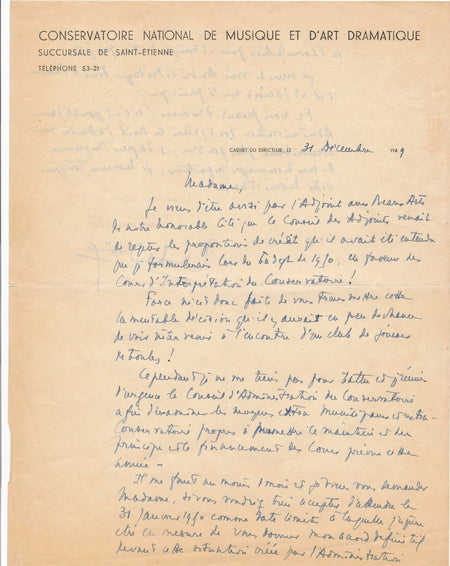 CONSERVATOIRE NATIONAL DE MUSIQUE ET D'ART DRAMATIQUE
SUCCURSALE DE SAINT-ÉTIENNE
TÉLÉPHONE 53-21
CABINET DU DIRECTEUR, LE 31 Décembre 1949
Madame,
Je viens d'être avisé par l'Adjoint aux Beaux Arts
de notre honorable Cité que le Conseil des Adjoints venait
de rejeter les propositions de crédit qu'il avait été entendu
que je formulerais lors du budget de 1950, en faveur des
Cours d'Interprétation du Conservatoire !
Force m'est donc faite de vous transmettre cette
lamentable décision qui
de voir à l'encontre d'un club de joueurs
de boules !
Cependant je ne me tiens pas pour battu et
d'urgence le Conseil d'Administration du Conservatoire
afin d'examiner les moyens extra Municipaux et extra-
Conservatoire propres à permettre le maintien et du
principe et le financement des Cours prévus cette
année -
Il me faut au moins 1 mois et je viens vous demander
Madame, si vous voudriez bien accepter d'attendre le
31 Janvier 1950 comme date limite à laquelle j'espère
être en mesure de vous donner mon accord définitif
devant cette situation créée par l'Administration